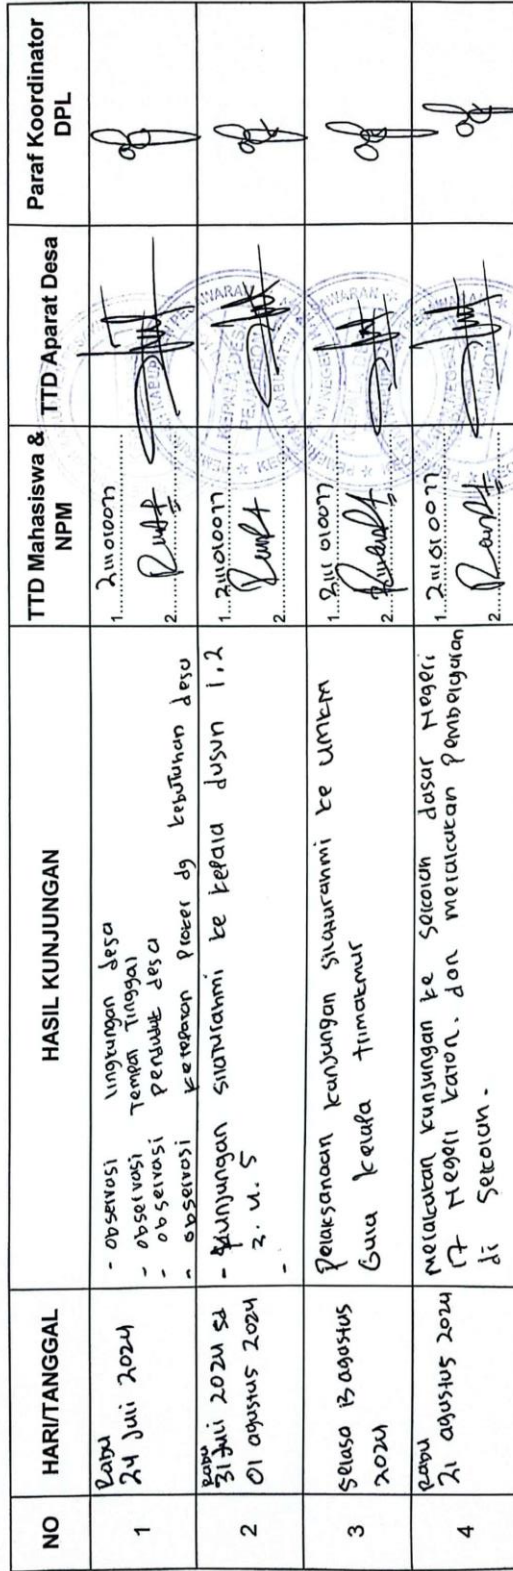 NO
HARI/TANGGAL
HASIL KUNJUNGAN
TTD Mahasiswa &
NPM
TTD Aparat Desa
Paraf Koordinator
DPL
1
Rabu
24 Juli 2024
- observasi lingkungan desa
- observasi Tempat Tinggal
- observasi penduduk desa
- observasi ketepatan proker dg kebutuhan desa
1. 2111010077
2.
2
Rabu
31 Juli 2024 sd
01 agustus 2024
- Kunjungan silaturahmi ke kepala dusun 1,2
3. 4. 5
-
1. 2111010077
2.
3
Selasa 13 agustus
2024
Pelaksanaan kunjungan silaturahmi ke UMKM
Gula kelapa trimakmur
1. 2111010077
2.
4
Rabu
21 agustus 2024
Melakukan kunjungan ke sekolah dasar Negeri
17 Negeri Katon. dan melakukan Pembelajaran
di Sekolah.
1. 2111010077
2.